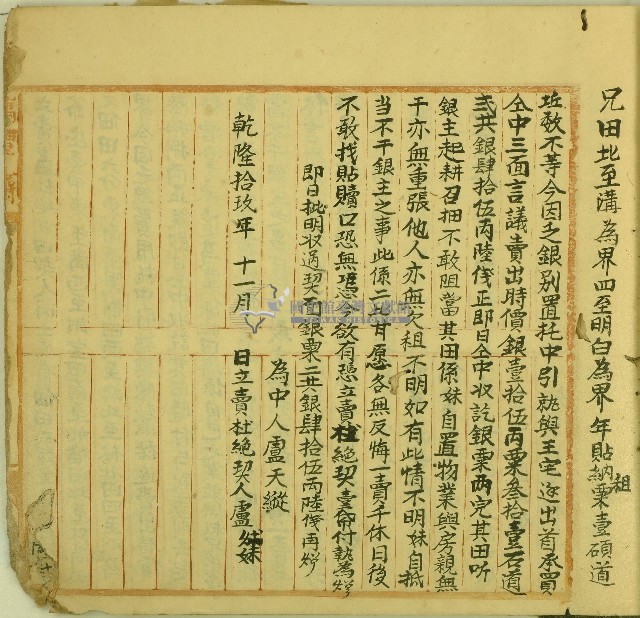 兄田北至溝為界四至明白為界年貼納租粟壹碩道
坵数不等今因乏銀別置托中引就與王宅邊出首承買
仝中三面言議賣出時價銀壹拾伍両粟叁拾壹石道
弍共銀肆拾伍両陸戋正即日仝中收訖銀粟両完其田听
銀主起耕召佃不敢阻當其田係妹自置物業與房親無
干亦無重張他人亦無欠租不明如有此情不明妹自抵
當不干銀主之事此係二比甘愿各無反悔一賣千休日後
不敢找貼贖口恐無憑欲有憑立賣杜絶契壹帋付執為炤
即日批明收過契面銀粟二共銀肆拾伍両陸戋再炤
為中人盧天縱
乾隆拾玖年十一月 日立賣杜絶契人盧妹